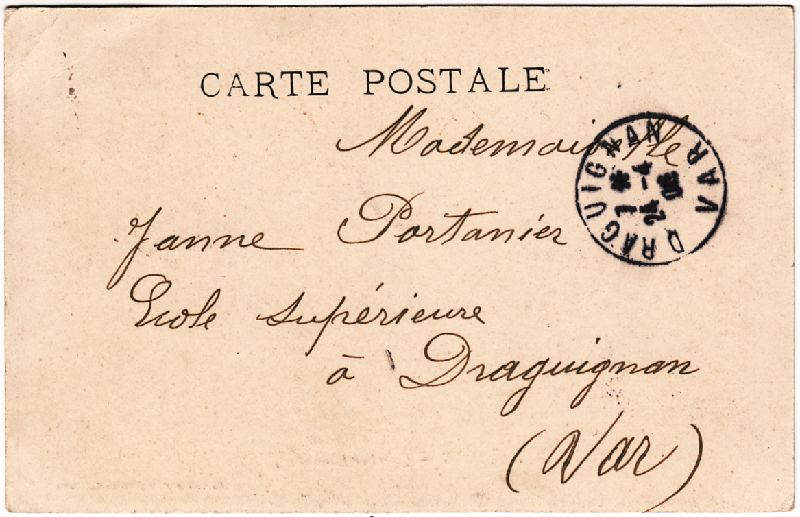 CARTE POSTALE
Mademoiselle
Jeanne Portanier
Ecole supérieure
à Draguignan
(Var)
DRAGUIGNAN VAR
24